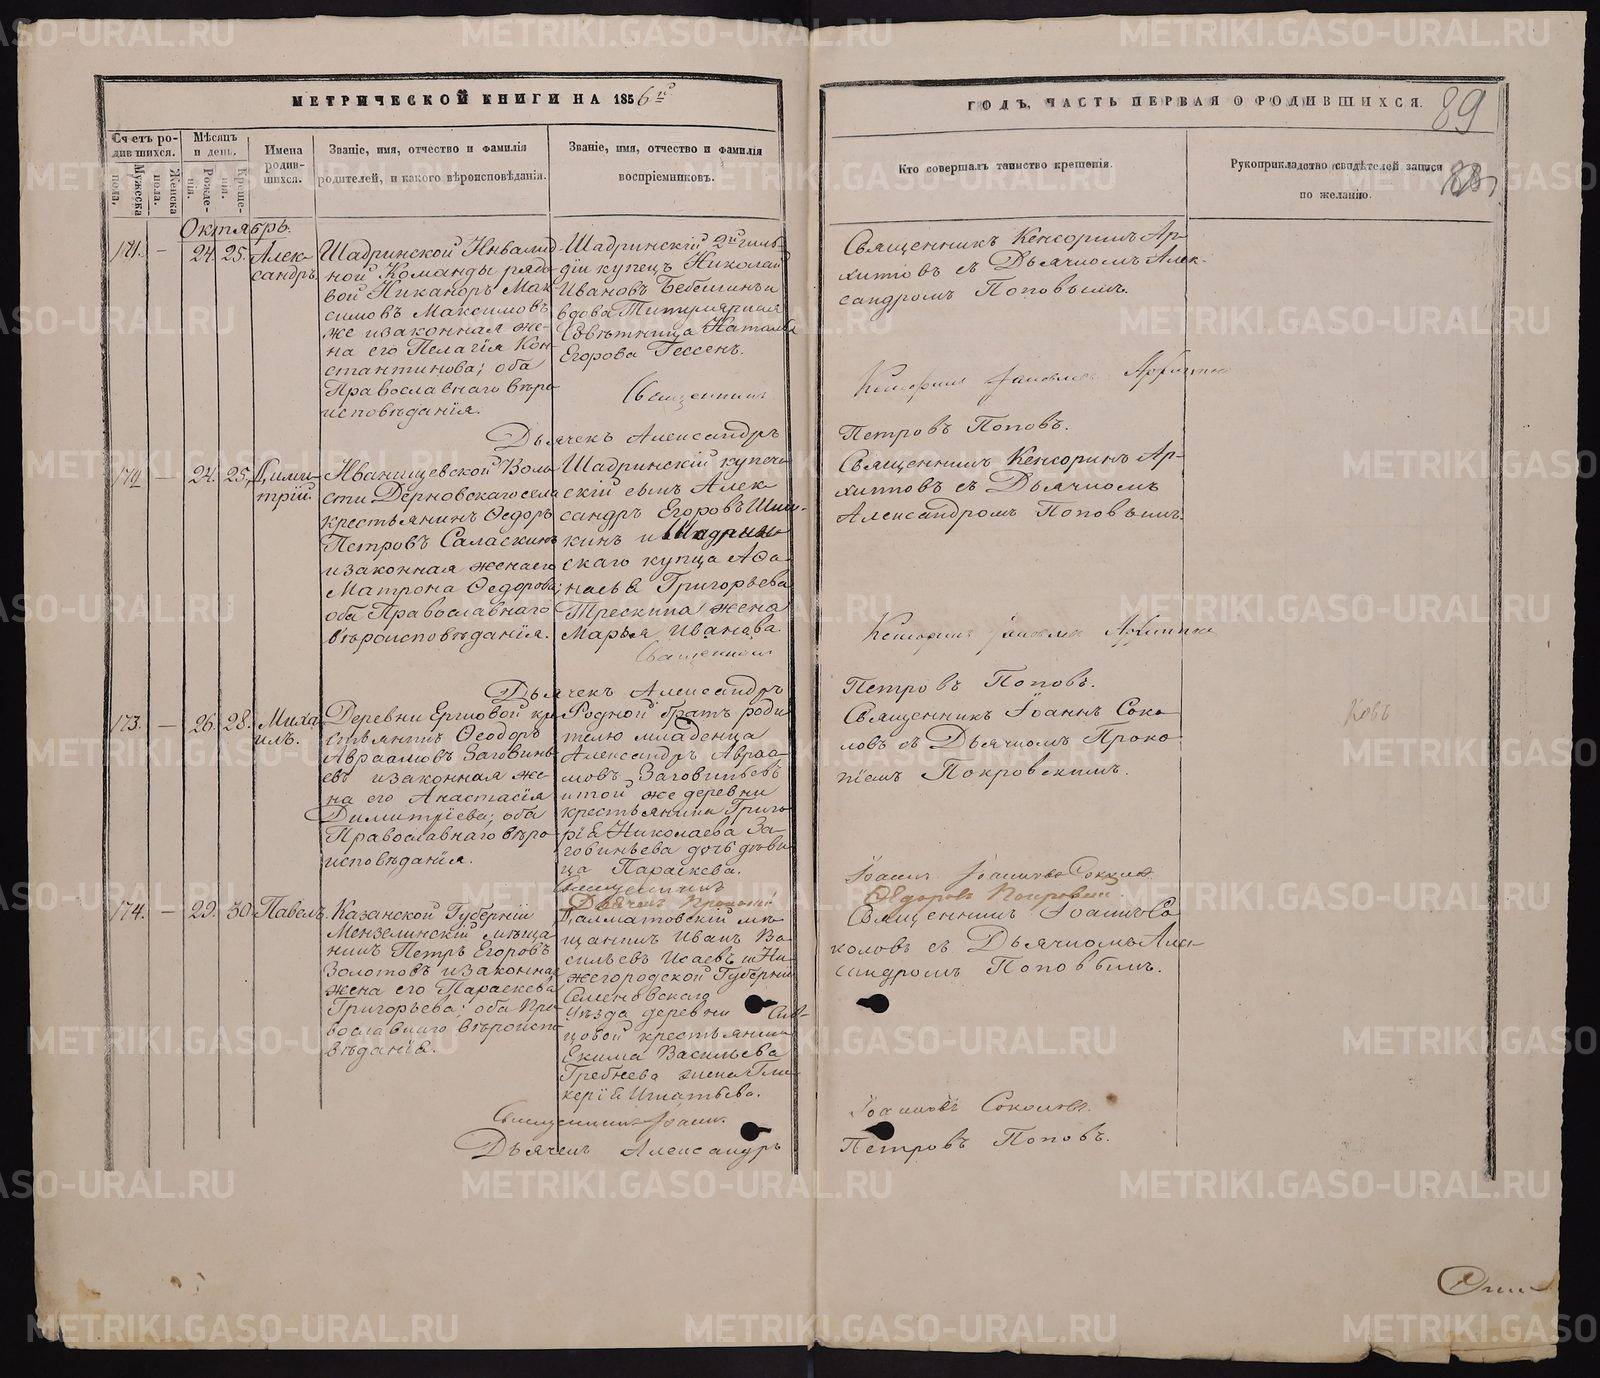 МЕТРИЧЕСКОЙ КНИГИ НА 1856й
ГОДЪ, ЧАСТЬ ПЕРВАЯ О РОДИВШИХСЯ.
89
Счетъ родившихся.
Мужеска пола.
Женска пола.
Мѣсяцъ и день.
Рожденія.
Крещенія.
Имена родившихся.
Званіе, имя, отчество и фамилія
родителей, и какого вѣроисповѣданія.
Званіе, имя, отчество и фамилія
воспріемниковъ.
Кто совершалъ таинство крещенія.
Рукоприкладство свидѣтелей записи
по желанію.
Октябрь.
171. — 24. 25.
Алек-
сандръ
Шадринской Инвалид
ной Команды рядо-
вой Никаноръ Мак
симовъ Максимовъ
же и законная же-
на его Пелагія Кон-
стантинова; оба
Православнаго вѣро
исповѣданія.
Шадринскій 2й гиль-
діи купецъ Николай
Ивановъ и
вдова Титулярная
Совѣтница Наталья
Егорова Гессенъ.
Священникъ
Дьячекъ Александръ
Священникъ Кенсоринъ Ар-
хиповъ съ Дьячкомъ Алек-
сандромъ Поповымъ.
Петровъ Поповъ.
172 — 24. 25.
Дими-
трій.
Иванищевской Воло
сти Дерновскаго села
крестьянинъ Ѳедоръ
Петровъ Саласкинъ
и законная жена его
Матрона Ѳедорова;
оба Православнаго
вѣроисповѣданія.
Шадринскій купече
скій сынъ Алек
сандръ Егоровъ Шиш-
кинъ и Шадрин-
скаго купца Аѳа
насья Григорьева
Трескина жена
Марья Иванова.
Священникъ
Дьячекъ Александръ
Священникъ Кенсоринъ Ар-
хиповъ съ Дьячкомъ
Александромъ Поповымъ.
Петровъ Поповъ.
173. — 26. 28.
Миха
илъ.
Деревни Ершовой кре
стьянинъ Ѳеодоръ
Авраамовъ Заговинь
евъ и законная же-
на его Анастасія
Димитріева; оба
Православнаго вѣро
исповѣданія.
Родной братъ роди
телю младенца
Александръ Авраа-
мовъ Заговиньевъ
и той же деревни
крестьянина Григо-
рія Николаева За-
говиньева дочь дѣви
ца Параскева.
Священникъ
Дьячекъ Прокопій
Священникъ Іоаннъ Соко
ловъ съ Дьячкомъ Проко
піемъ Покровскимъ.
174. — 29. 30.
Павелъ.
Казанской Губерніи
Мензелинскій мѣща
нинъ Петръ Егоровъ
Золотовъ и законная
жена его Параскева
Григорьева; оба Пра
вославнаго вѣроиспо
вѣданія.
Далматовскій мѣ
щанинъ Иванъ Ва
сильевъ Исаевъ и Ни
жегородской Губерніи
Семеновскаго
Уѣзда деревни
цовой крестьянина
Екима Васильева
Гребнева жена Гли
керія Игнатьева.
Священникъ Іоаннъ
Дьячекъ Александръ
Священникъ Іоаннъ Со
коловъ съ Дьячкомъ Алек
сандромъ Поповымъ.
Іоанновъ Соколовъ.
Петровъ Поповъ.
METRIKI.GASO-URAL.RU